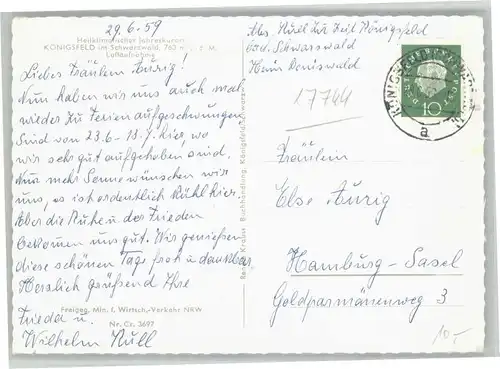 29.6.59
Heilklimatischer Jahreskurort
KÖNIGSFELD im Schwarzwald, 763 m ü. M.
Luftaufnahme
Liebes Fräulein Aurig!
Nun haben wir uns auch mal
wieder zu Ferien aufgeschwungen
Sind von 23.6 - 18.7 hier, wo
wir sehr gut aufgehoben sind.
Nur mehr Sonne wünschen wir
uns, es ist ordentlich kühl hier.
Aber die Ruhe u. der Frieden
bekommen uns gut. Wir genießen
diese schönen Tage froh u. dankbar.
Herzlich grüßend Ihre
Frieda u.
Wilhelm Null
Freigeg. Min. f. Wirtsch.-Verkehr NRW
Nr. Cr. 3697
Buchhandlung, Königsfeld/Schwarzw.
Abs. Null zur Zeit Königsfeld
bad. Schwarzwald
Heim
17744
10
a
Fräulein
Else Aurig
Hamburg-Sasel
Goldparmänenweg 3
10,-